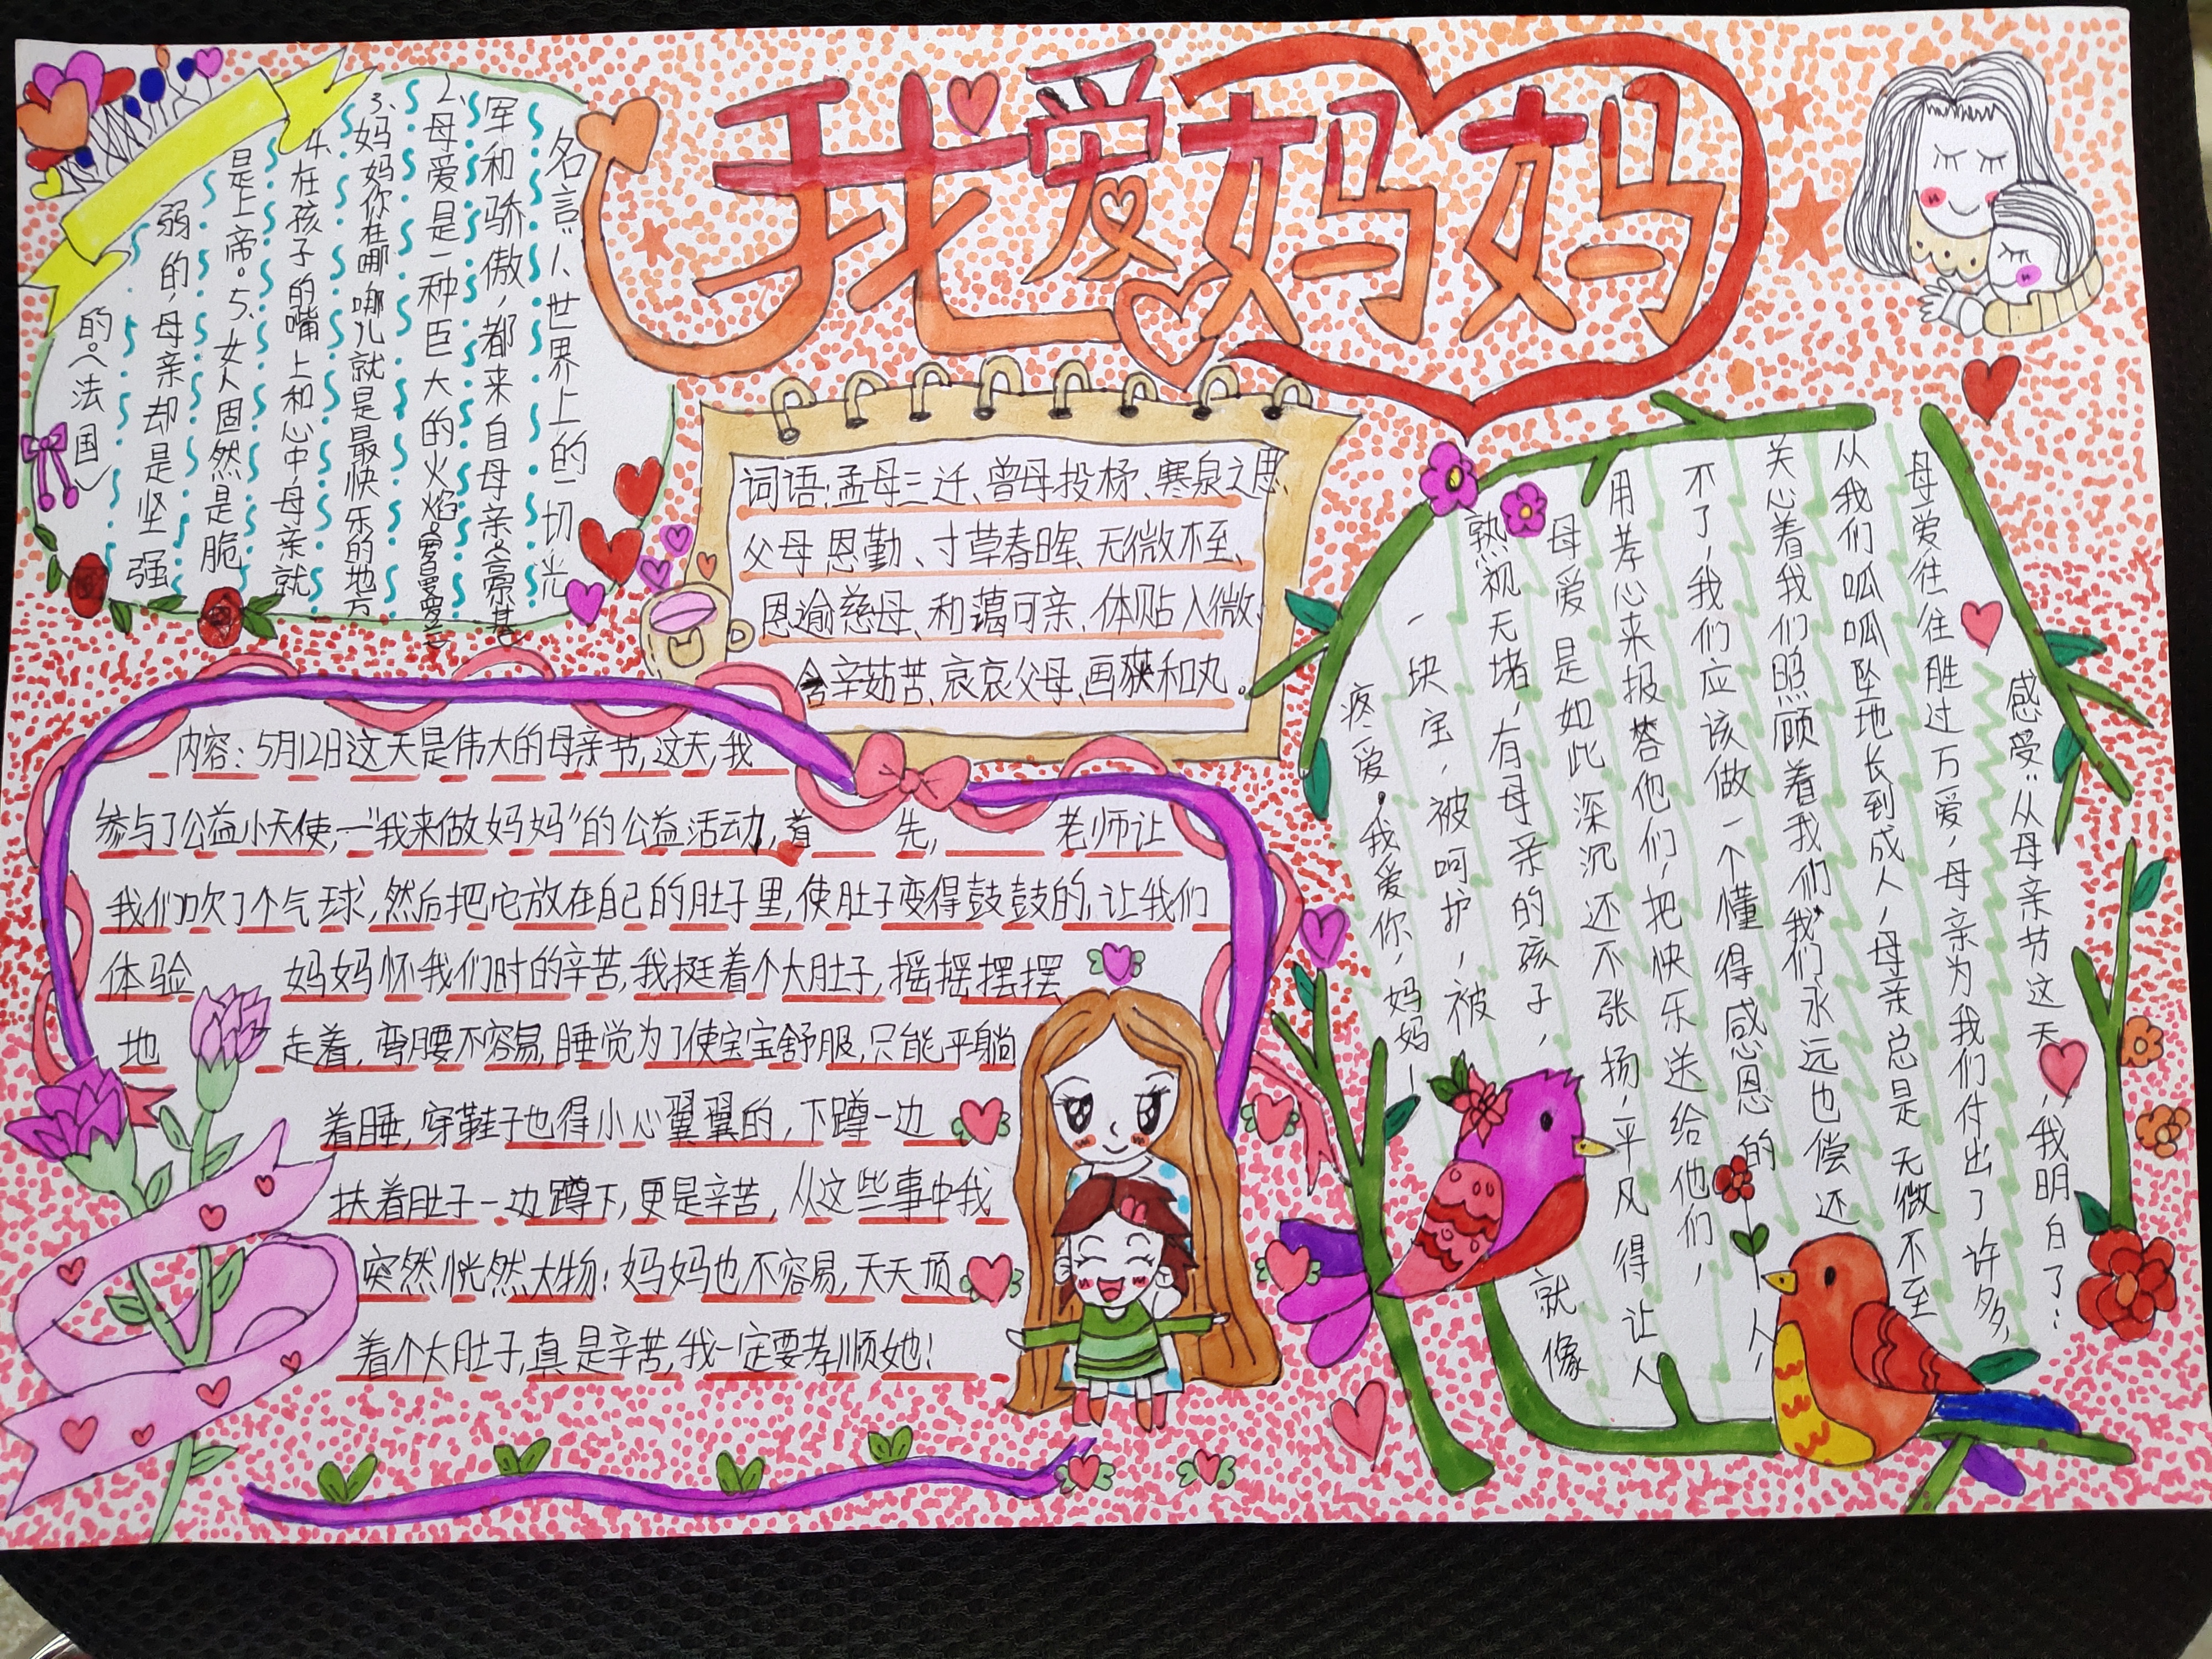 我爱妈妈
名言:1、世界上的一切光
军和骄傲,都来自母亲
2.母爱是一种巨大的火焰。
3、妈妈你在哪哪儿就是最快乐的地方
4.在孩子的嘴上和心中,母亲就
是上帝。5、女人固然是脆
弱的,母亲却是坚强
的。(法国)
词语:孟母三迁、曾母投杼、寒泉之思、
父母恩勤、寸草春晖、无微不至、
恩逾慈母、和蔼可亲、体贴入微、
含辛茹苦、哀哀父母、画荻和丸。
内容:5月12日这天是伟大的母亲节,这天,我
参与了公益小天使,一“我来做妈妈”的公益活动,首先,老师让
我们吹了个气球,然后把它放在自己的肚子里,使肚子变得鼓鼓的,让我们
体验妈妈怀我们时的辛苦,我挺着个大肚子,摇摇摆摆
地走着,弯腰不容易,睡觉为了使宝宝舒服,只能平躺
着睡,穿鞋子也得小心翼翼的,下蹲一边
扶着肚子一边蹲下,更是辛苦,从这些事中我
突然恍然大物:妈妈也不容易,天天顶
着个大肚子,真是辛苦,我一定要孝顺她!
感受:从母亲节这天,我明白了:
母爱往往胜过万爱,母亲为我们付出了许多,
从我们呱呱坠地长到成人,母亲总是无微不至
关心着我们照顾着我们我们永远也偿还
不了,我们应该做一个懂得感恩的人,
用孝心来报答他们,把快乐送给他们,
母爱是如此深沉还不张扬,平风得让人
熟视无堵,有母亲的孩子,就像
一块宝,被呵护,被
疼爱。我爱你,妈妈!